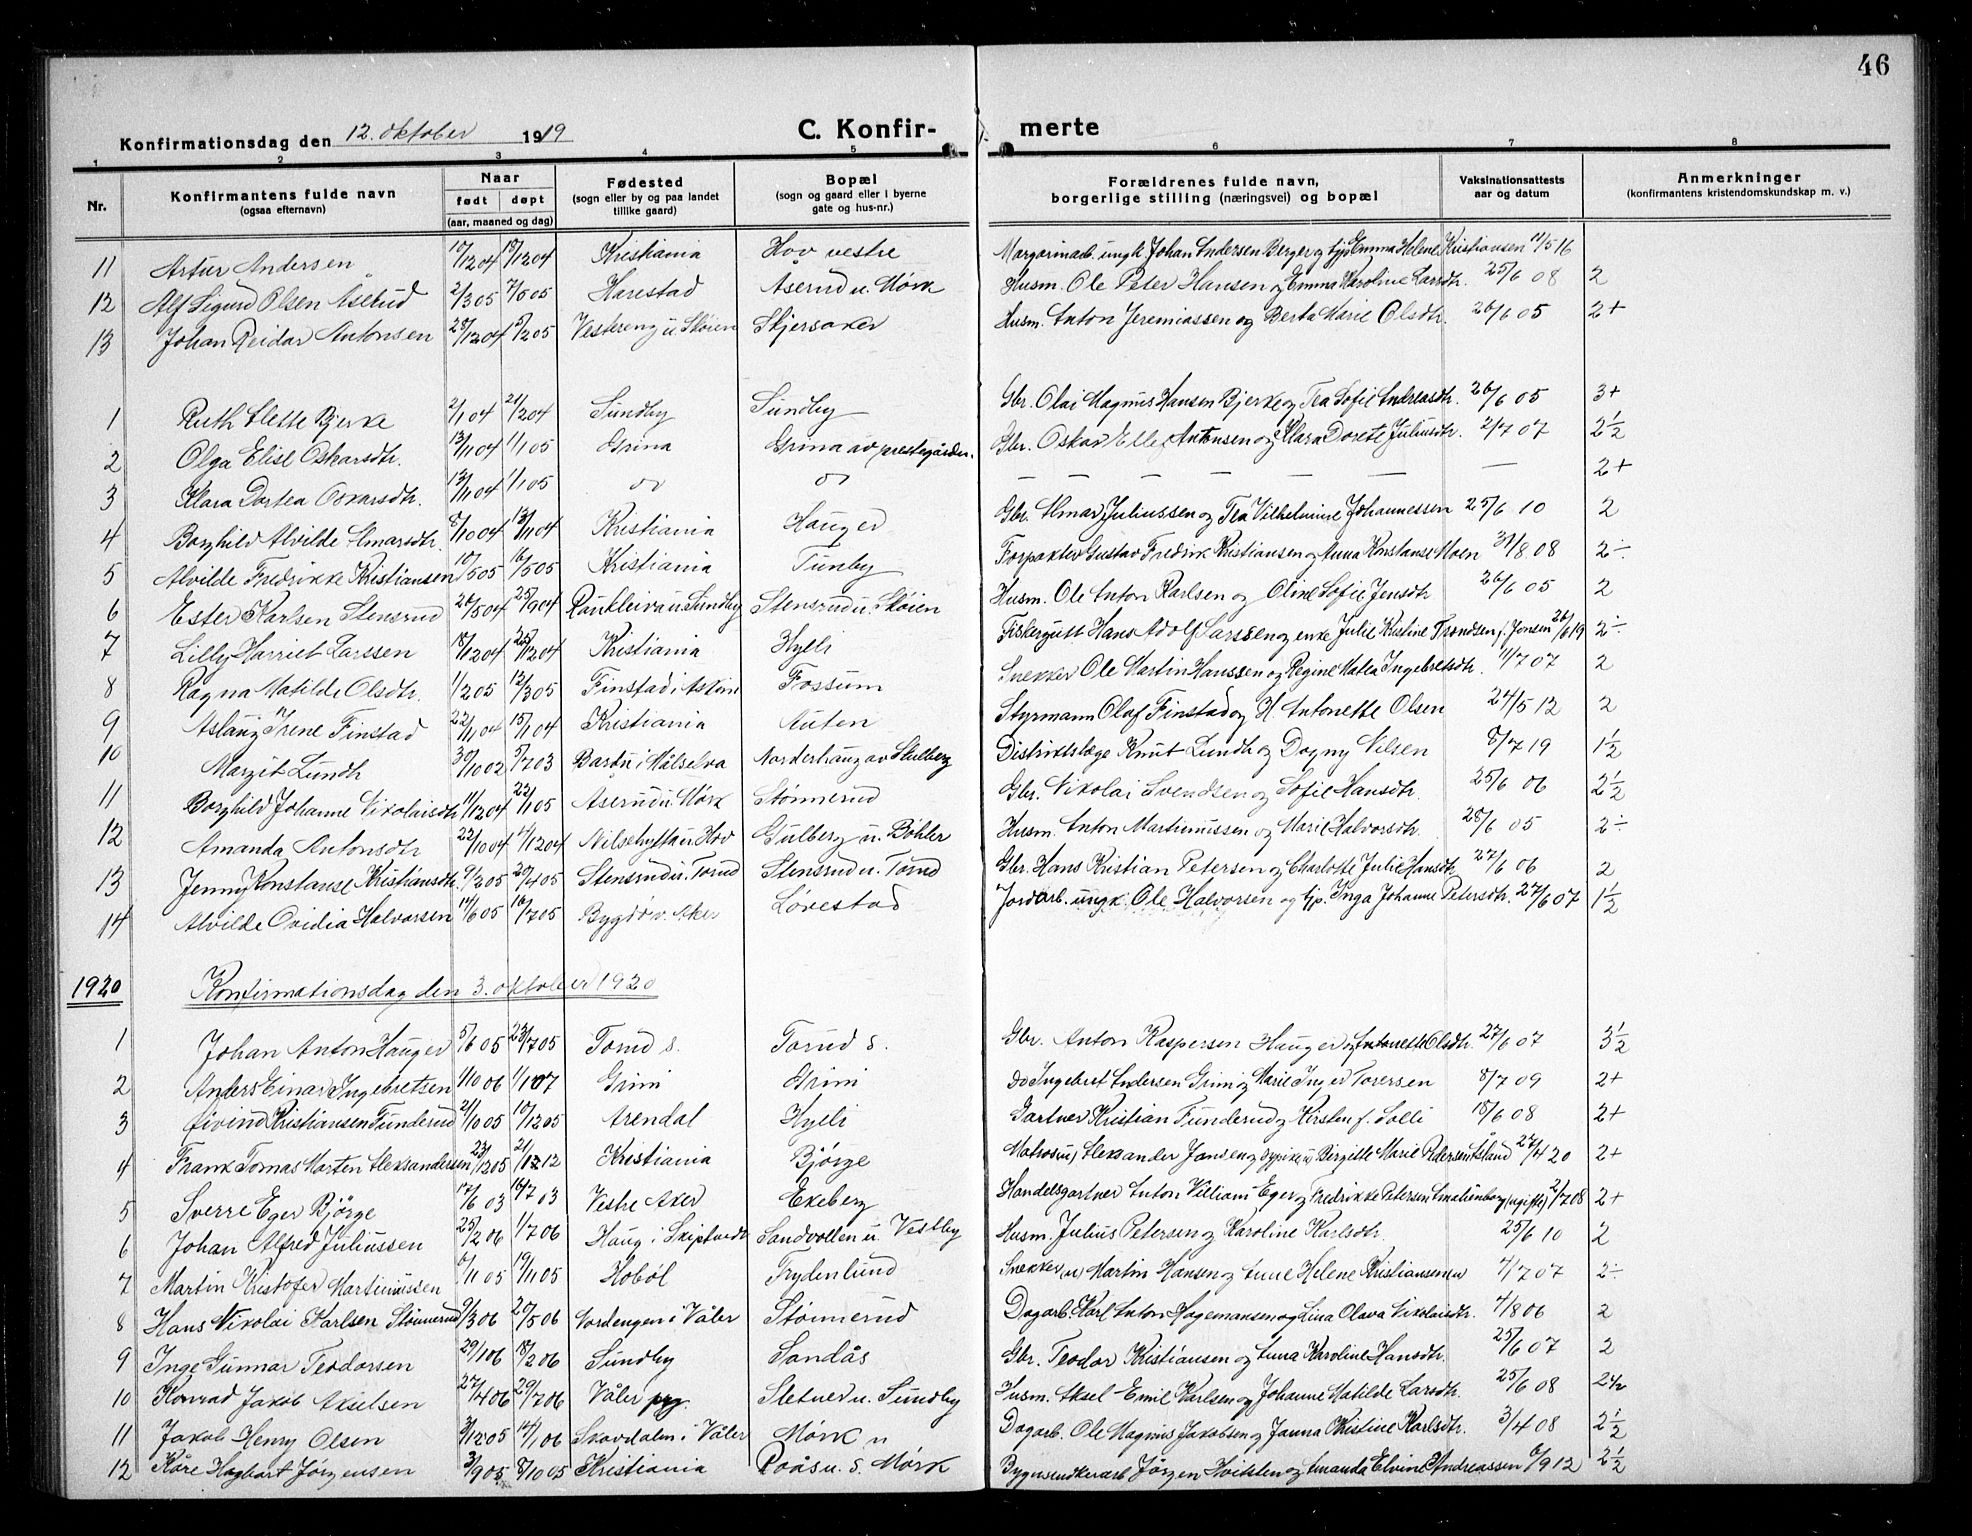 46
Konfirmationsdag den 12. oktober 1919 C. Konfir- merte
1 2 3 4 5 6 7 8
Nr. Konfirmantens fulde navn (ogsaa efternavn) Naar født døpt (aar, maaned og dag) Fødested (sogn eller by og paa landet tillike gaard) Bopæl (sogn og gaard eller i byerne gate og hus-nr.) Forældrenes fulde navn, borgerlige stilling (næringsvei) og bopæl Vaksinationsattests aar og datum Anmerkninger (konfirmantens kristendomskundskap m. v.)
11 Artur Andersen 10/12 04 18/12 04 Kristiania Hov vestre Margarinarb. ungk. Johan Andersen Berger og tjp. Emma Helene Kristiansen 11/5 16
12 Alf Sigurd Olsen Åserud 2/3 05 7/5 05 Harestad Åserud u. Mørk Husm. Ole Peter Hansen og Emma Karoline Larsdtr. 25/6 08 2
13 Johan Reidar Antonsen 28/12 04 5/2 05 Vestereng u. Skøien Skjersaker Husm. Anton Jeremiassen og Berta Marie Olsdtr. 26/6 05 2+
1 Ruth Slette Bjerke 2/1 04 21/2 04 Sundby Sundby Gbr. Olai Magnus Hansen Bjerke og Tea Sofie Andreasdtr. 26/6 05 3+
2 Olga Elise Oskarsdtr. 13/11 04 1/1 05 Grina Grina av prestegården. Gbr. Oskar Elle Antonsen og Klara Dorete Juliusdtr. 2/7 07 2½
3 Klara Dortea Oskarsdtr. 13/11 04 1/1 05 do do — — — — — 2+
4 Borghild Alvilde Almarsdtr. 8/10 04 13/11 04 Kristiania Hauger Gbr. Almar Juliussen og Tea Vilhelmine Johannessen 25/6 10 2
5 Alvilde Fredrikke Kristiansen 10/5 05 16/5 05 Kristiania Tunby Forpakter Gustav Fredrik Kristiansen og Anna Konstanse Moen 31/8 08 2÷
6 Ester Karlsen Stensrud 28/5 04 25/9 04 Raukleiva u. Sundby Stensrud u. Skøien Husm. Ole Anton Karlsen og Oline Sofie Jensdtr 26/6 05 2
7 Lilly Harriet Larssen 18/12 04 25/12 04 Kristiania Hylli Fiskergutt Hans Adolf Larssen og enke Julie Kristine Trondsen f. Jonsen 26/6 19 2÷
8 Ragna Matilde Olsdtr. 1/2 05 12/3 05 Finstad i Askim Fossum Snekker Ole Martin Hanssen og Regine Matea Ingebretsdtr. 11/7 07 2
9 Aslaug Irene Finstad 22/11 04 15/1 04 Kristiania Auten Styrmann Olaf Finstad og H. Antonette Olsen 24/5 12 2
10 Margit Lundh 30/10 02 5/7 03 Bardu i Målselva Norderhaug av Skulberg Distriktslæge Knut Lundh og Dagny Nilsen 8/7 19 1½
11 Borghild Johanne Nikolaisdtr 11/12 04 22/1 05 Åserud u. Mørk Stømnerud Gbr. Nikolai Svendsen og Sofie Hansdtr. 25/6 06 2½
12 Amanda Antonsdtr 22/10 04 11/12 04 Nilsehytta u. Hov Gulberg u. Bøhler Husm. Anton Martinussen og Marie Halvorsdtr. 28/6 05 2÷
13 Jenny Konstanse Kristiansdtr. 9/2 05 20/4 05 Stensrud u. Torud Stensrud u. Torud Gbr. Hans Kristian Petersen og Charlotte Julie Hansdtr. 27/6 06 2
14 Alvilde Ovidia Halvorsen 14/6 05 16/7 05 Bygdø v. Aker Løvestad Jordarb. ungk. Ole Halvorsen og tjp. Inga Johanne Petersdtr. 27/6 07 1½
1920 Konfirmationsdag den 3. oktober 1920
1 Johan Anton Hauger 5/6 05 23/7 05 Torud s. Torud s. Gbr. Anton Kaspersen Hauger og Antonette Olsdtr. 27/6 07 3½
2 Anders Einar Ingebretsen 1/10 06 1/1 07 Grini Grini Do Ingebert Andersen Grini og Marie Inger Torersen 8/7 09 2+
3 Øivind Kristiansen Tunderud 21/10 05 10/12 05 Arendal Hylli Gartner Kristian Funderud og Kirsten f. Solli 18/6 08 2+
4 Frank Tomas Marten Aleksandersen 23/12 05 21/1 12 Kristiania Bjørge Matros(u) Aleksander Jansen og Bergitte Marie Pedersen 27/4 20 2+
5 Sverre Eger Bjørge 17/6 03 16/7 03 Vestre Aker Ekeberg Handelsgartner Anton Villiam Eger og Fredrikke Petersen Amalienborg (ugifte) 2/7 08 2+
6 Johan Alfred Juliussen 25/2 06 1/7 06 Haug i Skiptvedt Sandvollen u. Vestby Husm. Julius Petersen og Karoline Karlsdtr. 25/6 10 2
7 Martin Kristofer Martinussen 6/11 05 19/11 05 Hobøl Frydenlund Snekker (u) Martin Hansen og Anne Helene Kristiansen (u) 4/7 07 2÷
8 Hans Nikolai Karlsen Stømnerud 9/3 06 20/5 06 Nordengen i Våler Stømnerud Dagarb. Karl Anton Hagemansen og Lina Olava Nikolaisdtr. 4/8 06 2
9 Inge Gunnar Teodorsen 29/1 06 18/2 06 Sundby Sandås Gbr. Teodor Kristiansen og Anna Karoline Hansdtr. 25/6 07 2
10 Konrad Jakob Akselsen 27/4 06 29/7 06 Våler prg. Sletner u. Sundby Husm. Aksel Emil Karlsen og Johanne Matilde Larsdtr. 25/6 08 2½
11 Jakob Henry Olsen 3/12 05 14/1 06 Skovdalen i Våler Mørk n Dagarb. Ole Magnus Jakobsen og Janna Kristine Karlsdtr. 3/4 08 2½
12 Kåre Hagbart Jørgensen 3/9 05 8/10 05 Kristiania Roås u. s. Mørk Bygnsnekkerarb Jørgen Hvitsten og Amanda Elvine Andreassen 6/9 12 2½